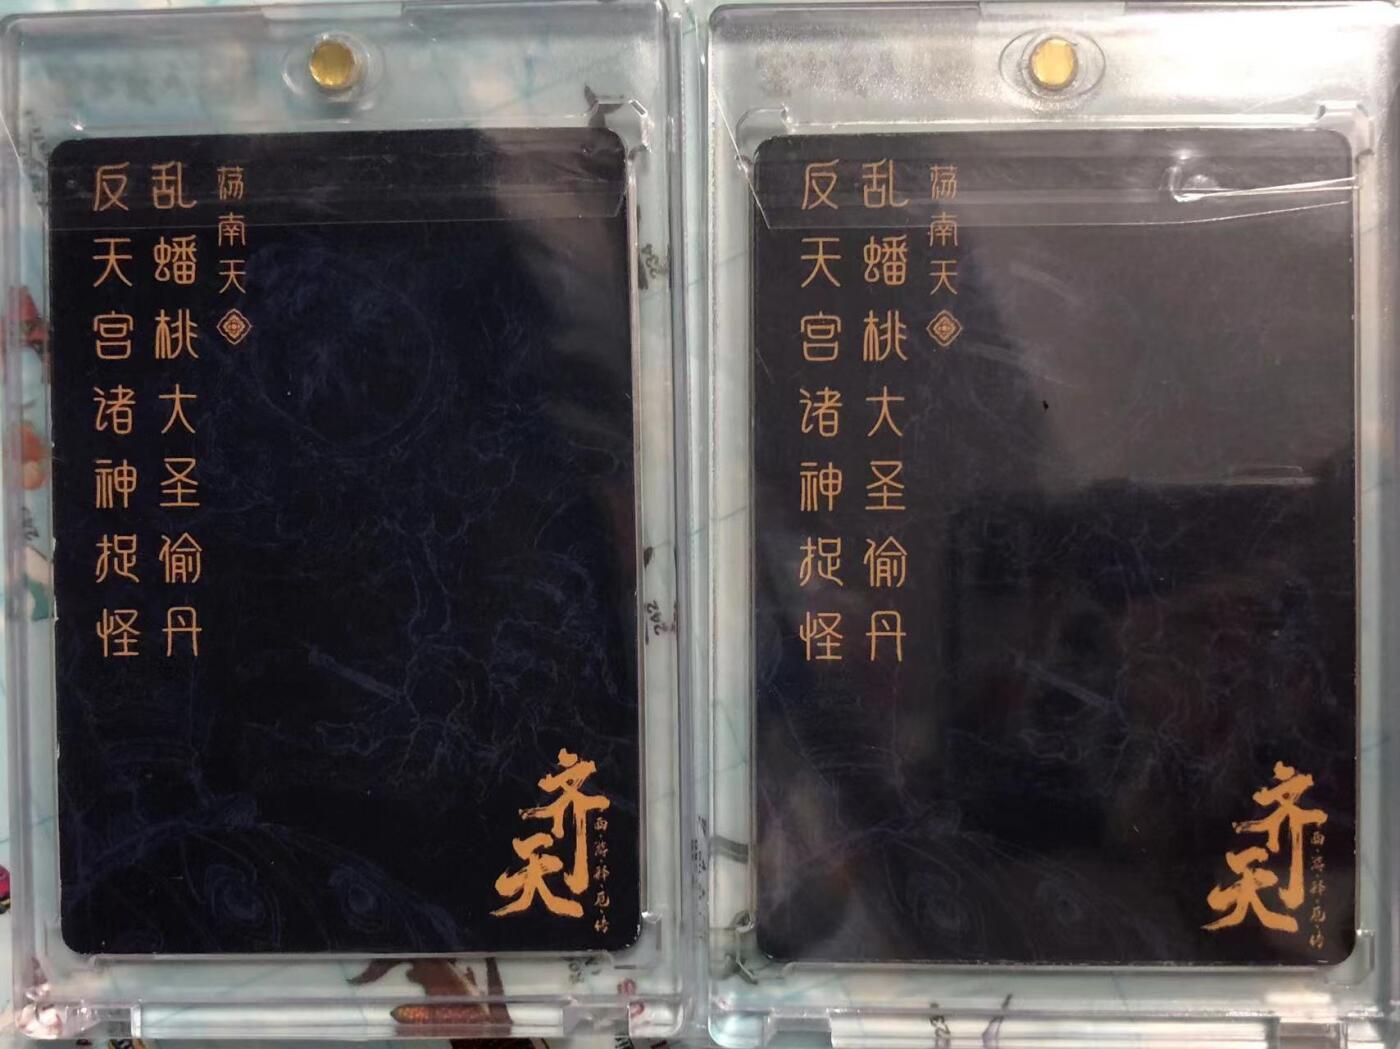 荡南天
乱蟠桃大圣偷丹
反天宫诸神捉怪
齐天
西·游·释·厄·传
荡南天
乱蟠桃大圣偷丹
反天宫诸神捉怪
齐天
西·游·释·厄·传